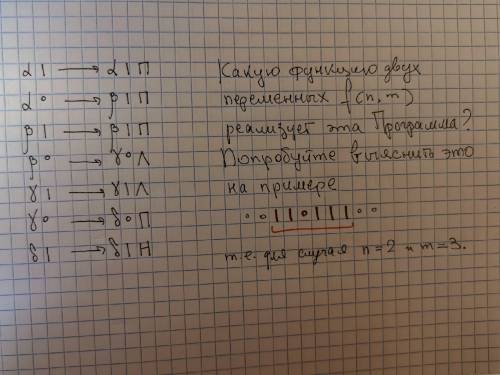 α | → α | П
α ° → β | П
β | → β | П
β ° → γ ° Л
γ | → γ | Л
γ ° → δ ° П
δ | → δ | Н
Какую функцию двух
переменных f(n, m)
реализует эта Программа?
Попробуйте выяснить это
на примере
° ° | | ° | | | ° °
т.е. для случая n=2 и m=3.